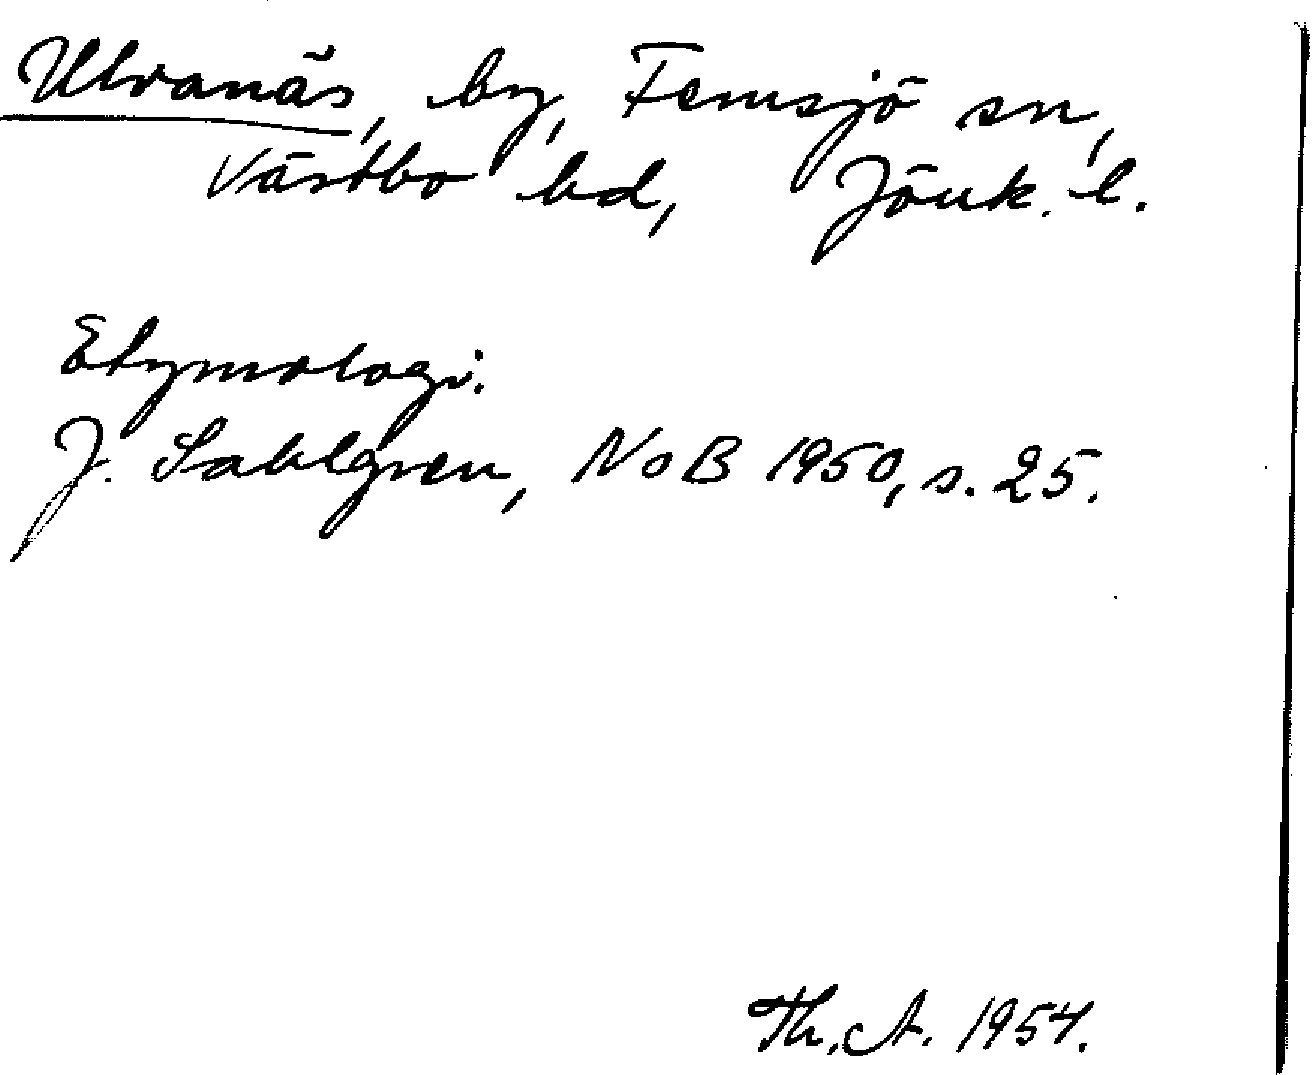 Ulvanäs, by, Femsjö sn,
Västbo hd, Jönk. l.
Etymologi.
J. Sahlgren, NoB 1950, s. 25.
Th. A. 1954.